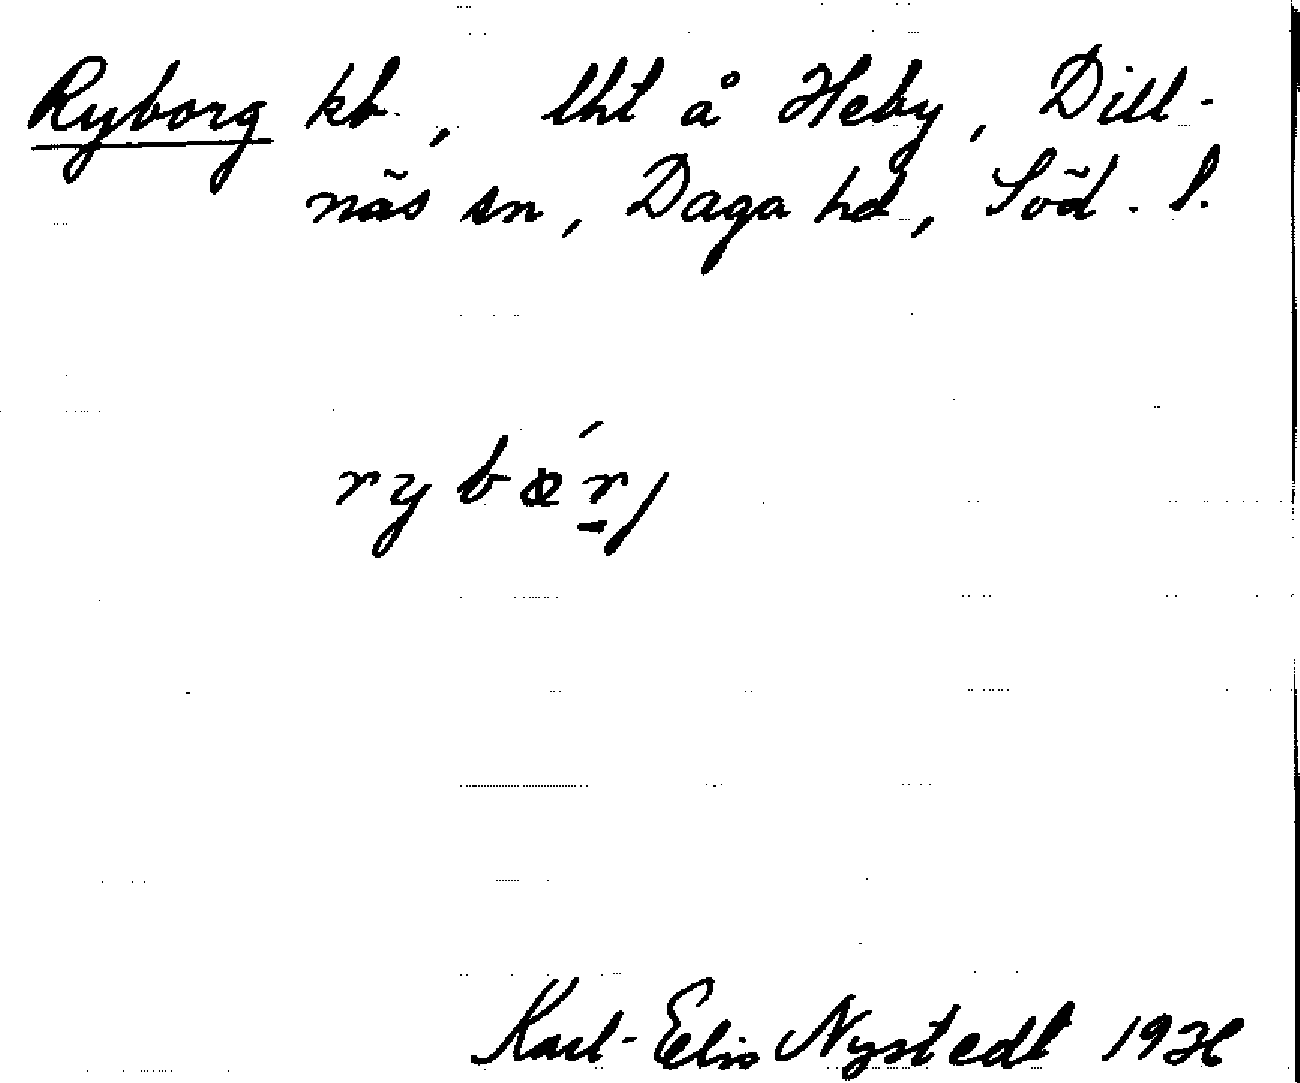 Ryborg kb., lht å Heby, Dill-
näs sn, Daga hd, Söd. l.
Karl-Elis Nystedt